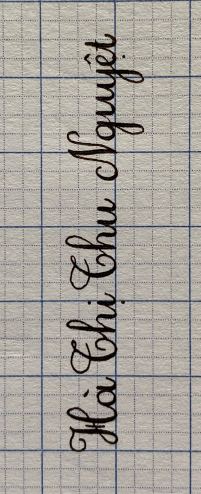 Hà Thị Thu Nguyệt